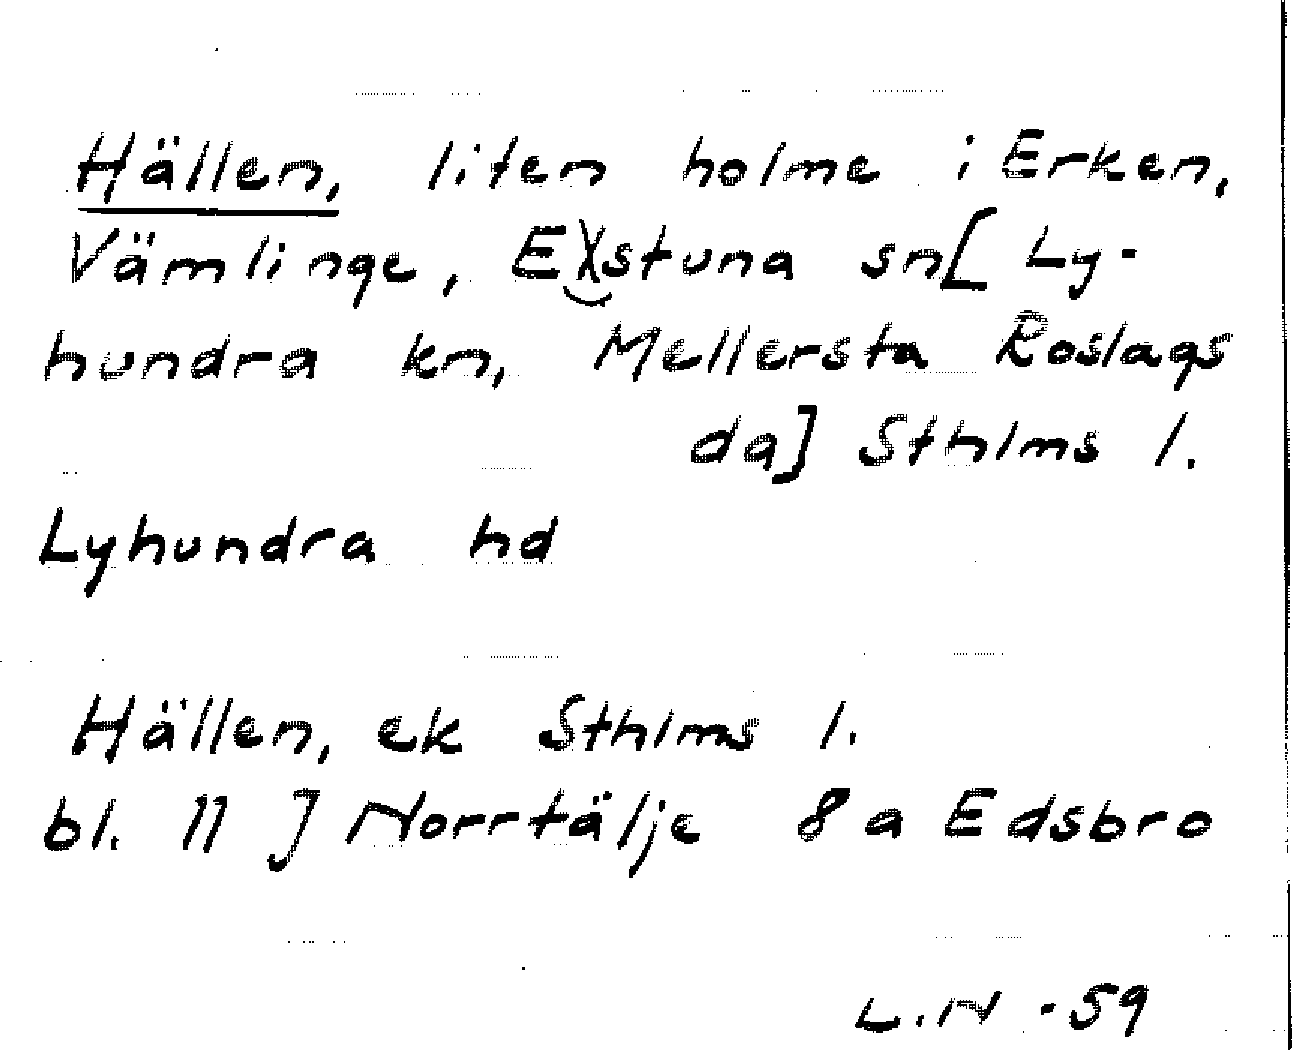 Hällen, liten holme i Erken,
Vämlinge, Estuna sn [Ly-
hundra kn, Mellersta Roslags
da] Sthlms l.
Lyhundra hd
Hällen, ek Sthlms l.
bl. 11 J Norrtälje 8a Edsbro
L.N -59